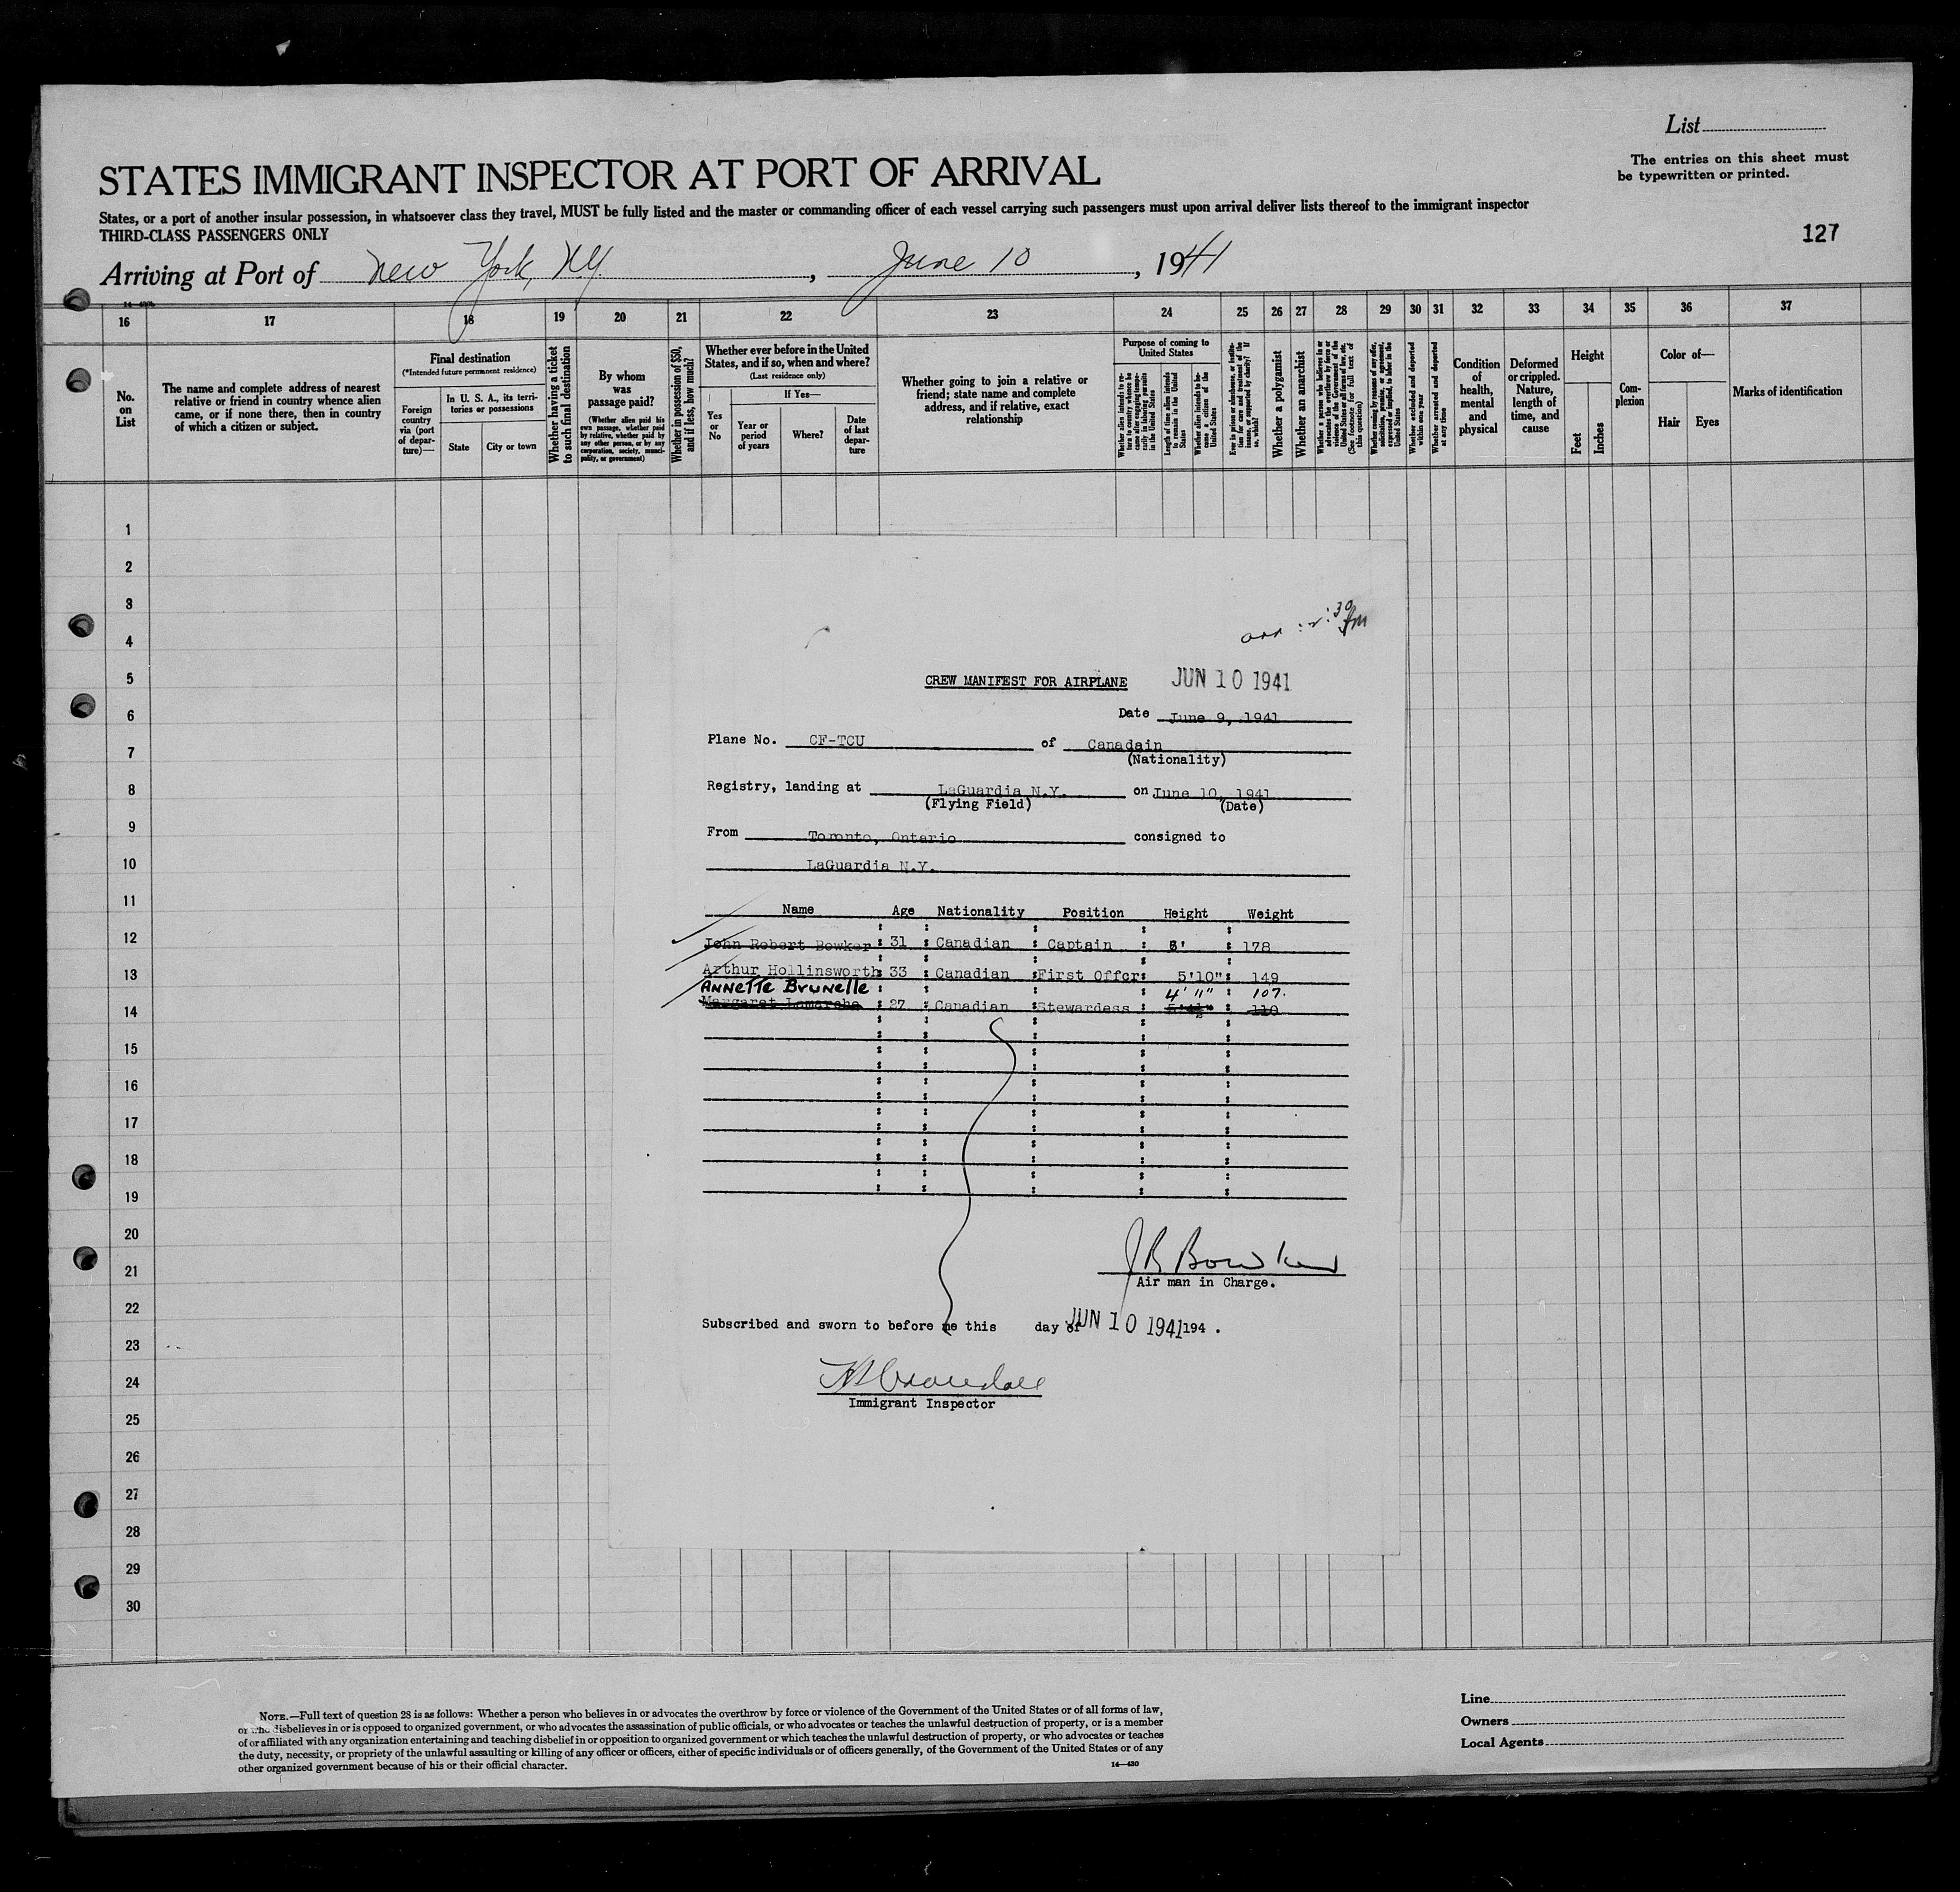 List
The entries on this sheet must
be typewritten or printed.
STATES IMMIGRANT INSPECTOR AT PORT OF ARRIVAL
States, or a port of another insular possession, in whatsoever class they travel, MUST be fully listed and the master or commanding officer of each vessel carrying such passengers must upon arrival deliver lists thereof to the immigrant inspector
THIRD-CLASS PASSENGERS ONLY
127
Arriving at Port of New York, NY, June 10, 1941
16 17 18 19 20 21 22 23 24 25 26 27 28 29 30 31 32 33 34 35 36 37
No. on List
The name and complete address of nearest
relative or friend in country whence alien
came, or if none there, then in country
of which a citizen or subject.
Final destination
(*Intended future permanent residence)
Foreign country via (port of departure)—
In U. S. A., its territories or possessions
State
City or town
Whether having a ticket to such final destination
By whom was passage paid?
(Whether alien paid his own passage, whether paid by relative, whether paid by any other person, or by any corporation, society, municipality, or government)
Whether in possession of $50, and if less, how much?
Whether ever before in the United States, and if so, when and where?
(Last residence only)
Yes or No
If Yes—
Year or period of years
Where?
Date of last departure
Whether going to join a relative or
friend; state name and complete
address, and if relative, exact
relationship
Purpose of coming to United States
Length of time alien intends to remain in the United States
Whether alien intends to become a citizen of the United States
Whether a polygamist
Whether an anarchist
Whether excluded and deported within one year
Whether arrested and deported at any time
Condition of health, mental and physical
Deformed or crippled. Nature, length of time, and cause
Height
Feet
Inches
Complexion
Color of—
Hair
Eyes
Marks of identification
1
2
3
4
5
6
7
8
9
10
11
12
13
14
15
16
17
18
19
20
21
22
23
24
25
26
27
28
29
30
CREW MANIFEST FOR AIRPLANE JUN 10 1941
Date June 9, 1941
Plane No. CF-TCU of Canadain
(Nationality)
Registry, landing at LaGuardia N.Y. on June 10, 1941
(Flying Field) (Date)
From Toronto, Ontario consigned to
LaGuardia N.Y.
Name Age Nationality Position Height Weight
John Robert Bowker : 31 : Canadian : Captain : 6' : 178
Arthur Hollinsworth : 33 : Canadian : First Offcr : 5'10" : 149
ANNETTE BRUNELLE 4' 11" 107.
Margaret Lamarche : 27 : Canadian : Stewardess : 5'4½" : 110
J R Bowker
Air man in Charge.
Subscribed and sworn to before me this day of JUN 10 1941 194 .
Immigrant Inspector
NOTE.—Full text of question 28 is as follows: Whether a person who believes in or advocates the overthrow by force or violence of the Government of the United States or of all forms of law,
or who disbelieves in or is opposed to organized government, or who advocates the assassination of public officials, or who advocates or teaches the unlawful destruction of property, or is a member
of or affiliated with any organization entertaining and teaching disbelief in or opposition to organized government or which teaches the unlawful destruction of property, or who advocates or teaches
the duty, necessity, or propriety of the unlawful assaulting or killing of any officer or officers, either of specific individuals or of officers generally, of the Government of the United States or of any
other organized government because of his or their official character.
14—430
Line
Owners
Local Agents